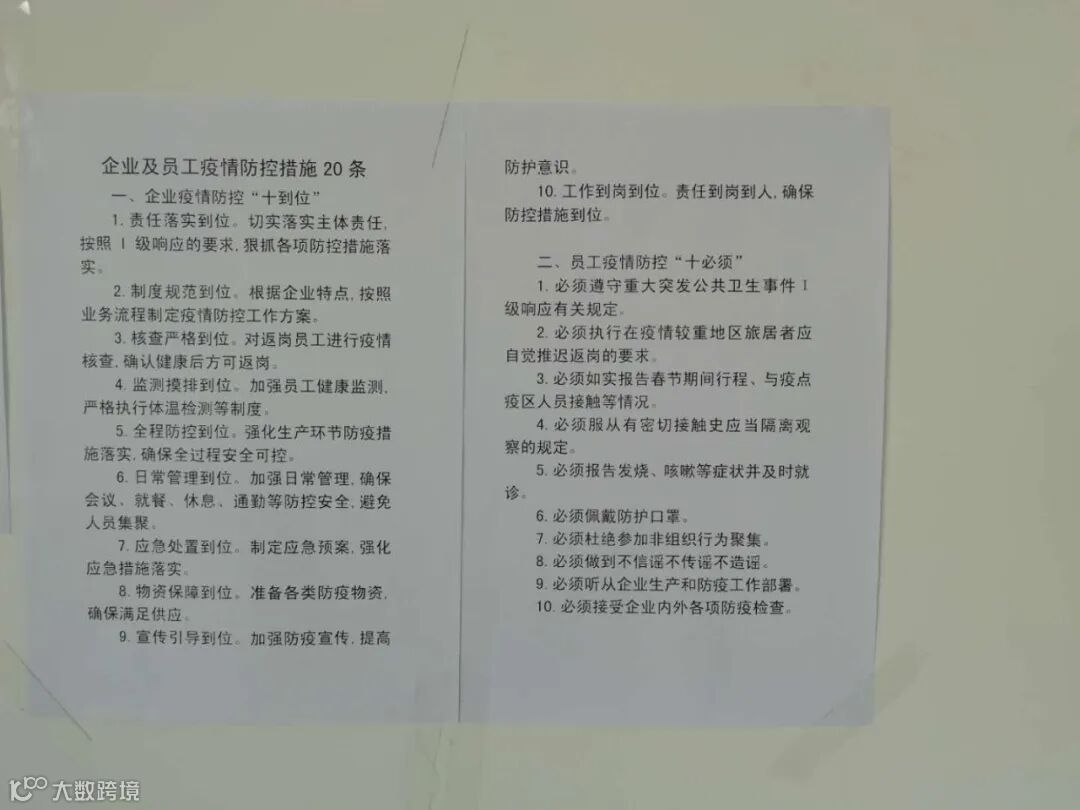 企业及员工疫情防控措施20条
一、企业疫情防控“十到位”
1.责任落实到位。切实落实主体责任,
按照Ⅰ级响应的要求,狠抓各项防控措施落
实。
2.制度规范到位。根据企业特点,按照
业务流程制定疫情防控工作方案。
3.核查严格到位。对返岗员工进行疫情
核查,确认健康后方可返岗。
4.监测摸排到位。加强员工健康监测,
严格执行体温检测等制度。
5.全程防控到位。强化生产环节防疫措
施落实,确保全过程安全可控。
6.日常管理到位。加强日常管理,确保
会议、就餐、休息、通勤等防控安全,避免
人员集聚。
7.应急处置到位。制定应急预案,强化
应急措施落实。
8.物资保障到位。准备各类防疫物资,
确保满足供应。
9.宣传引导到位。加强防疫宣传,提高
防护意识。
10.工作到岗到位。责任到岗到人,确保
防控措施到位。
二、员工疫情防控“十必须”
1.必须遵守重大突发公共卫生事件Ⅰ
级响应有关规定。
2.必须执行在疫情较重地区旅居者应
自觉推迟返岗的要求。
3.必须如实报告春节期间行程、与疫点
疫区人员接触等情况。
4.必须服从有密切接触史应当隔离观
察的规定。
5.必须报告发烧、咳嗽等症状并及时就
诊。
6.必须佩戴防护口罩。
7.必须杜绝参加非组织行为聚集。
8.必须做到不信谣不传谣不造谣。
9.必须听从企业生产和防疫工作部署。
10.必须接受企业内外各项防疫检查。
大数跨境